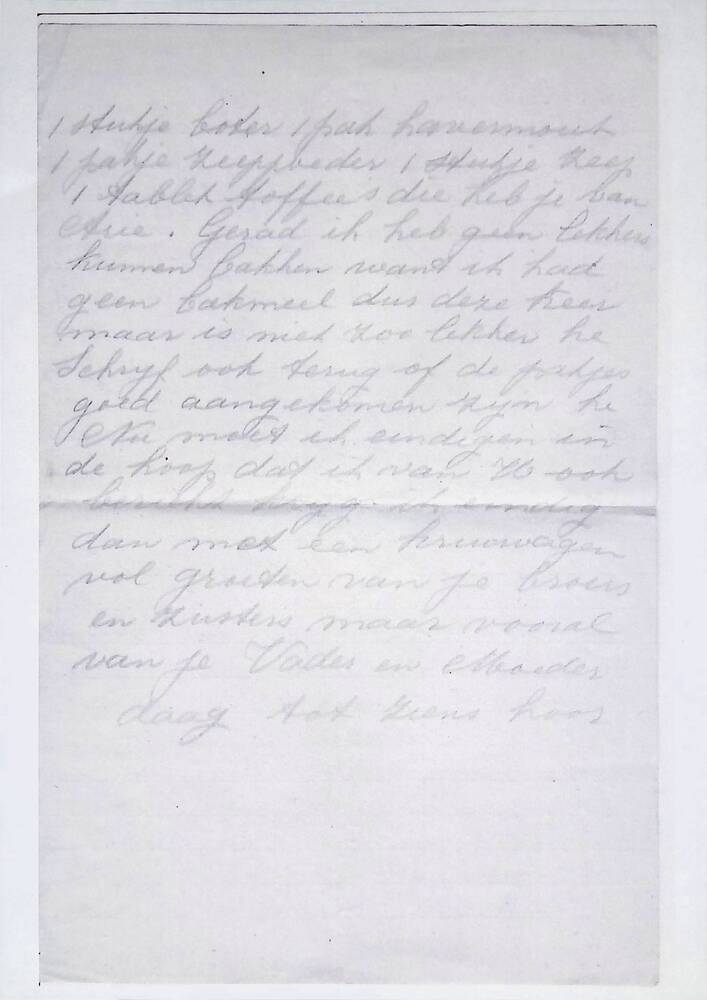 1 stukje boter 1 pak havermout
1 pakje zeeppoeder 1 stukje zeep
1 tablet toffees die heb je van
Arie. Gerad ik heb geen lekkers
kunnen bakken want ik had
geen bakmeel dus deze keer
maar is niet zoo lekker he
Schryf ook terug of de pakjes
goed aangekomen zyn he
Nu moet ik eindigen in
de hoop dat ik van U ook
bericht kryg ik eindig
dan met een kruiwagen
vol groeten van je broers
en zusters maar vooral
van je Vader en Moeder
daag tot ziens hoor